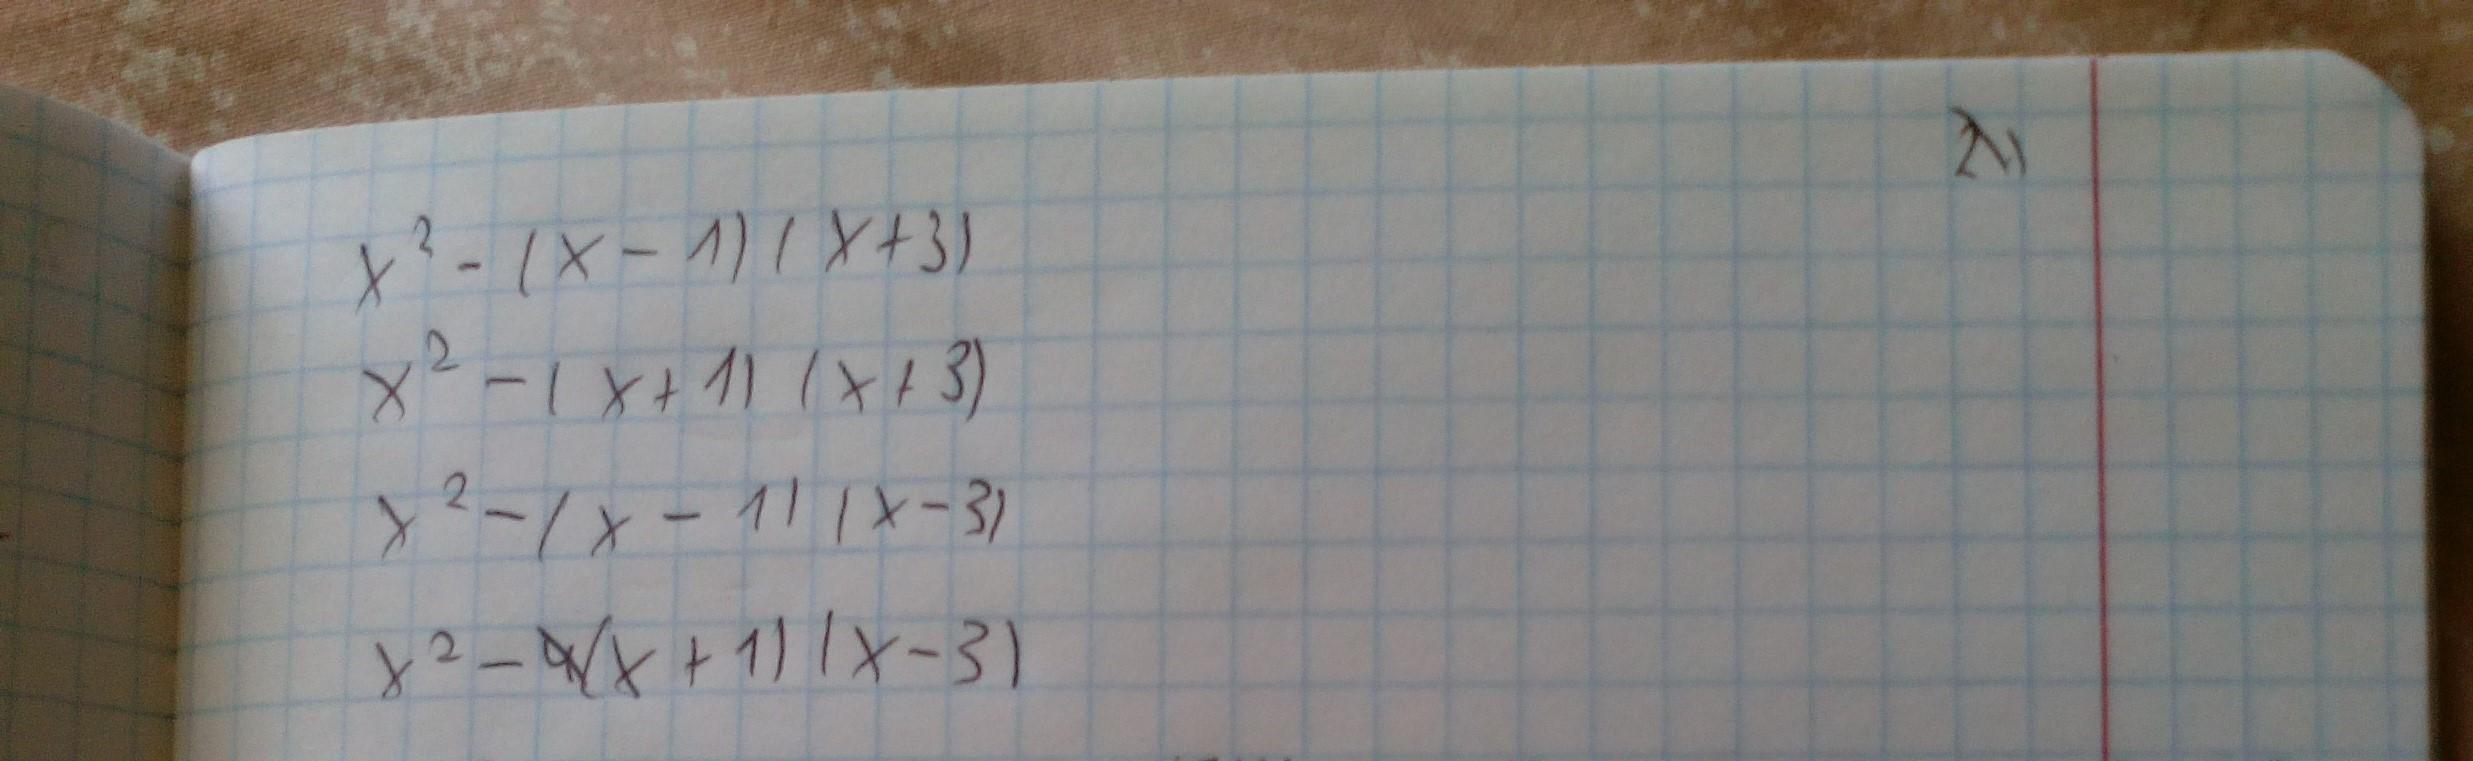 x² - (x - 1) (x+3)
x² - (x+1) (x+3)
x² - (x - 1) (x-3)
x² - (x+1) (x-3)